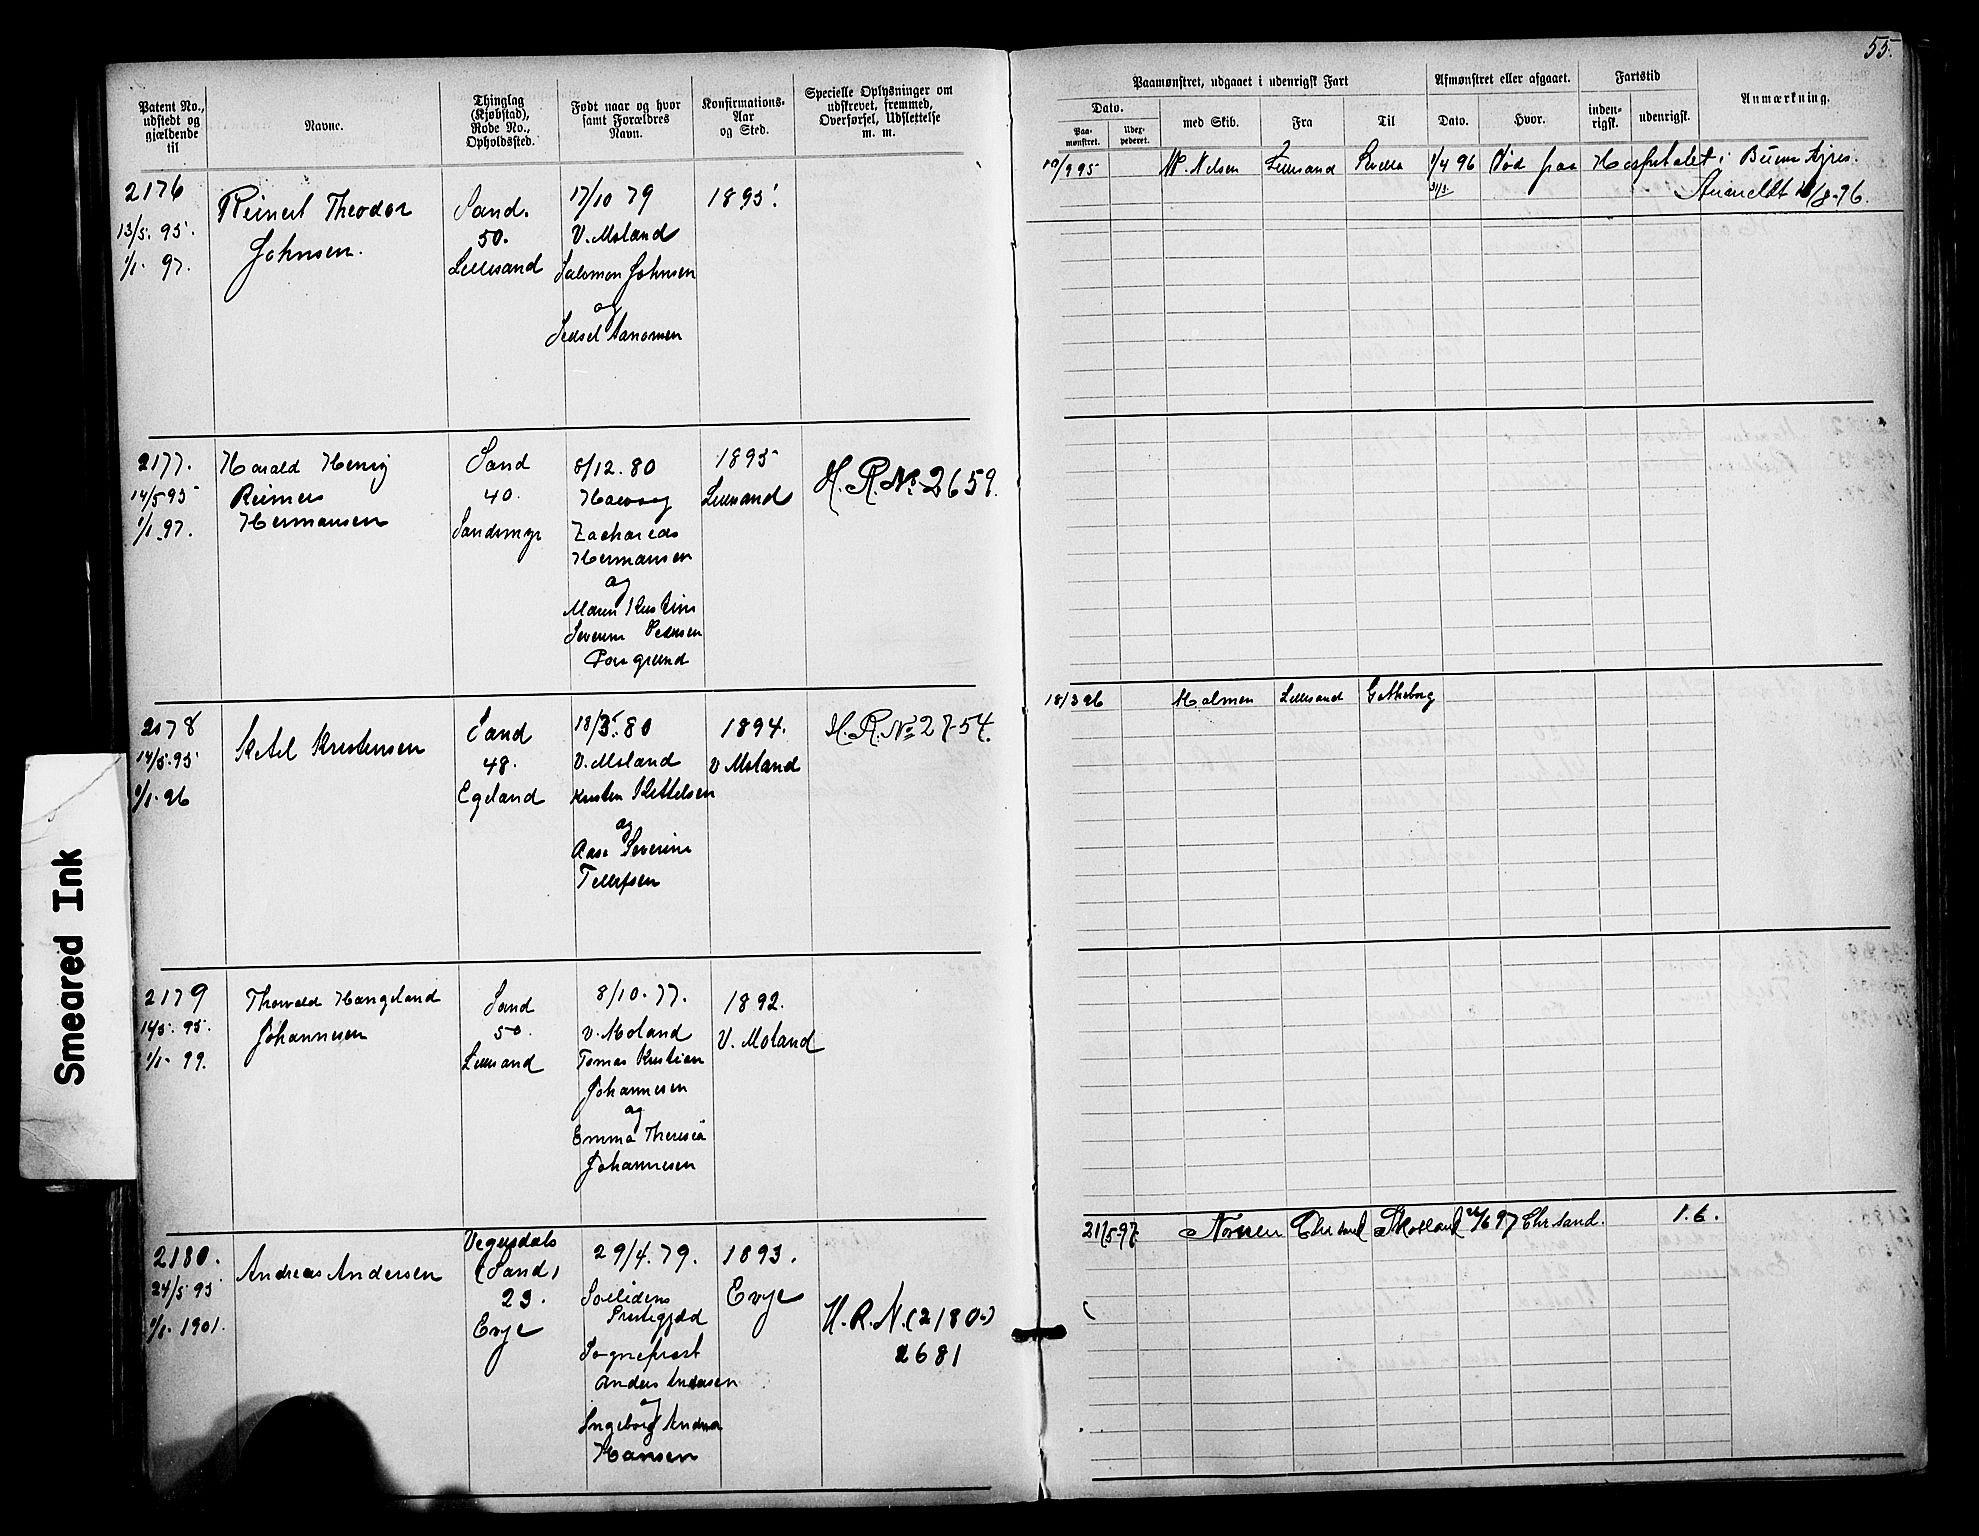 55.
Patent No., udstedt og gjældende til
Navne.
Thinglag (Kjøbstad), Rode No., Opholdssted.
Født naar og hvor samt Forældres Navn.
Konfirmations-Aar og Sted.
Specielle Oplysninger om udskrevet, fremmed, Overførsel, Udslettelse m. m.
Paamønstret, udgaaet i udenrigsk Fart
Afmønstret eller afgaaet.
Fartstid
Anmærkning.
Dato.
Paa-mønstret.
Udex-pederet.
med Skib.
Fra
Til
Dato.
Hvor.
inden-rigsk.
udenrigsk.
2176
13/5. 95.
1/1. 97.
Reinert Theodor
Johnsen.
Sand.
50.
Lillesand
17/10 79
V. Moland
Salomon Johnsen
og
1895.
10/9 95
Nelsen
Lillesand
1/4 96
31/3
Død paa Hospitalet i Buenos Ayres.
2177.
14/5 95
1/1 97.
Harald Henrig
Reimers
Hermansen
Sand
40.
Sandsmyr
8/12. 80
Zacharias
Hermansen
og
Maren Kirstine
Severine Pedersen
1895
Lillesand
H. R. No 2659.
2178
14/5. 95
1/1. 96
Ketel Kristensen
Sand
48.
Egeland
18/3. 80
V. Moland
Kristen Kettelsen
og
Aase Severine
Tellefsen
1894.
V Moland
H. R. No 2754.
18/3 96
Holmen
Lillesand
Gøtheborg
2179
14/5. 95.
1/1. 99.
Thorvald Hangeland
Johannesen
Sand
50.
Lillesand
8/10. 77.
V. Moland
Tomas Kristian
Johannesen
og
Emma Theresia
Johannesen
1892.
V. Moland
2180.
24/5 95
1/1. 1901.
Andreas Andersen
Vegusdals
(Sand)
23.
Evje
29/4. 79.
Prestegjeld
Anders Andersen
og
Ingeborg Andrea
Hansen
1893.
Evje
H. R. N. (2180.)
2681
21/5 97.
Chrsand
Skotland
/6 97
Chrsand.
1. 6.
Smeared Ink